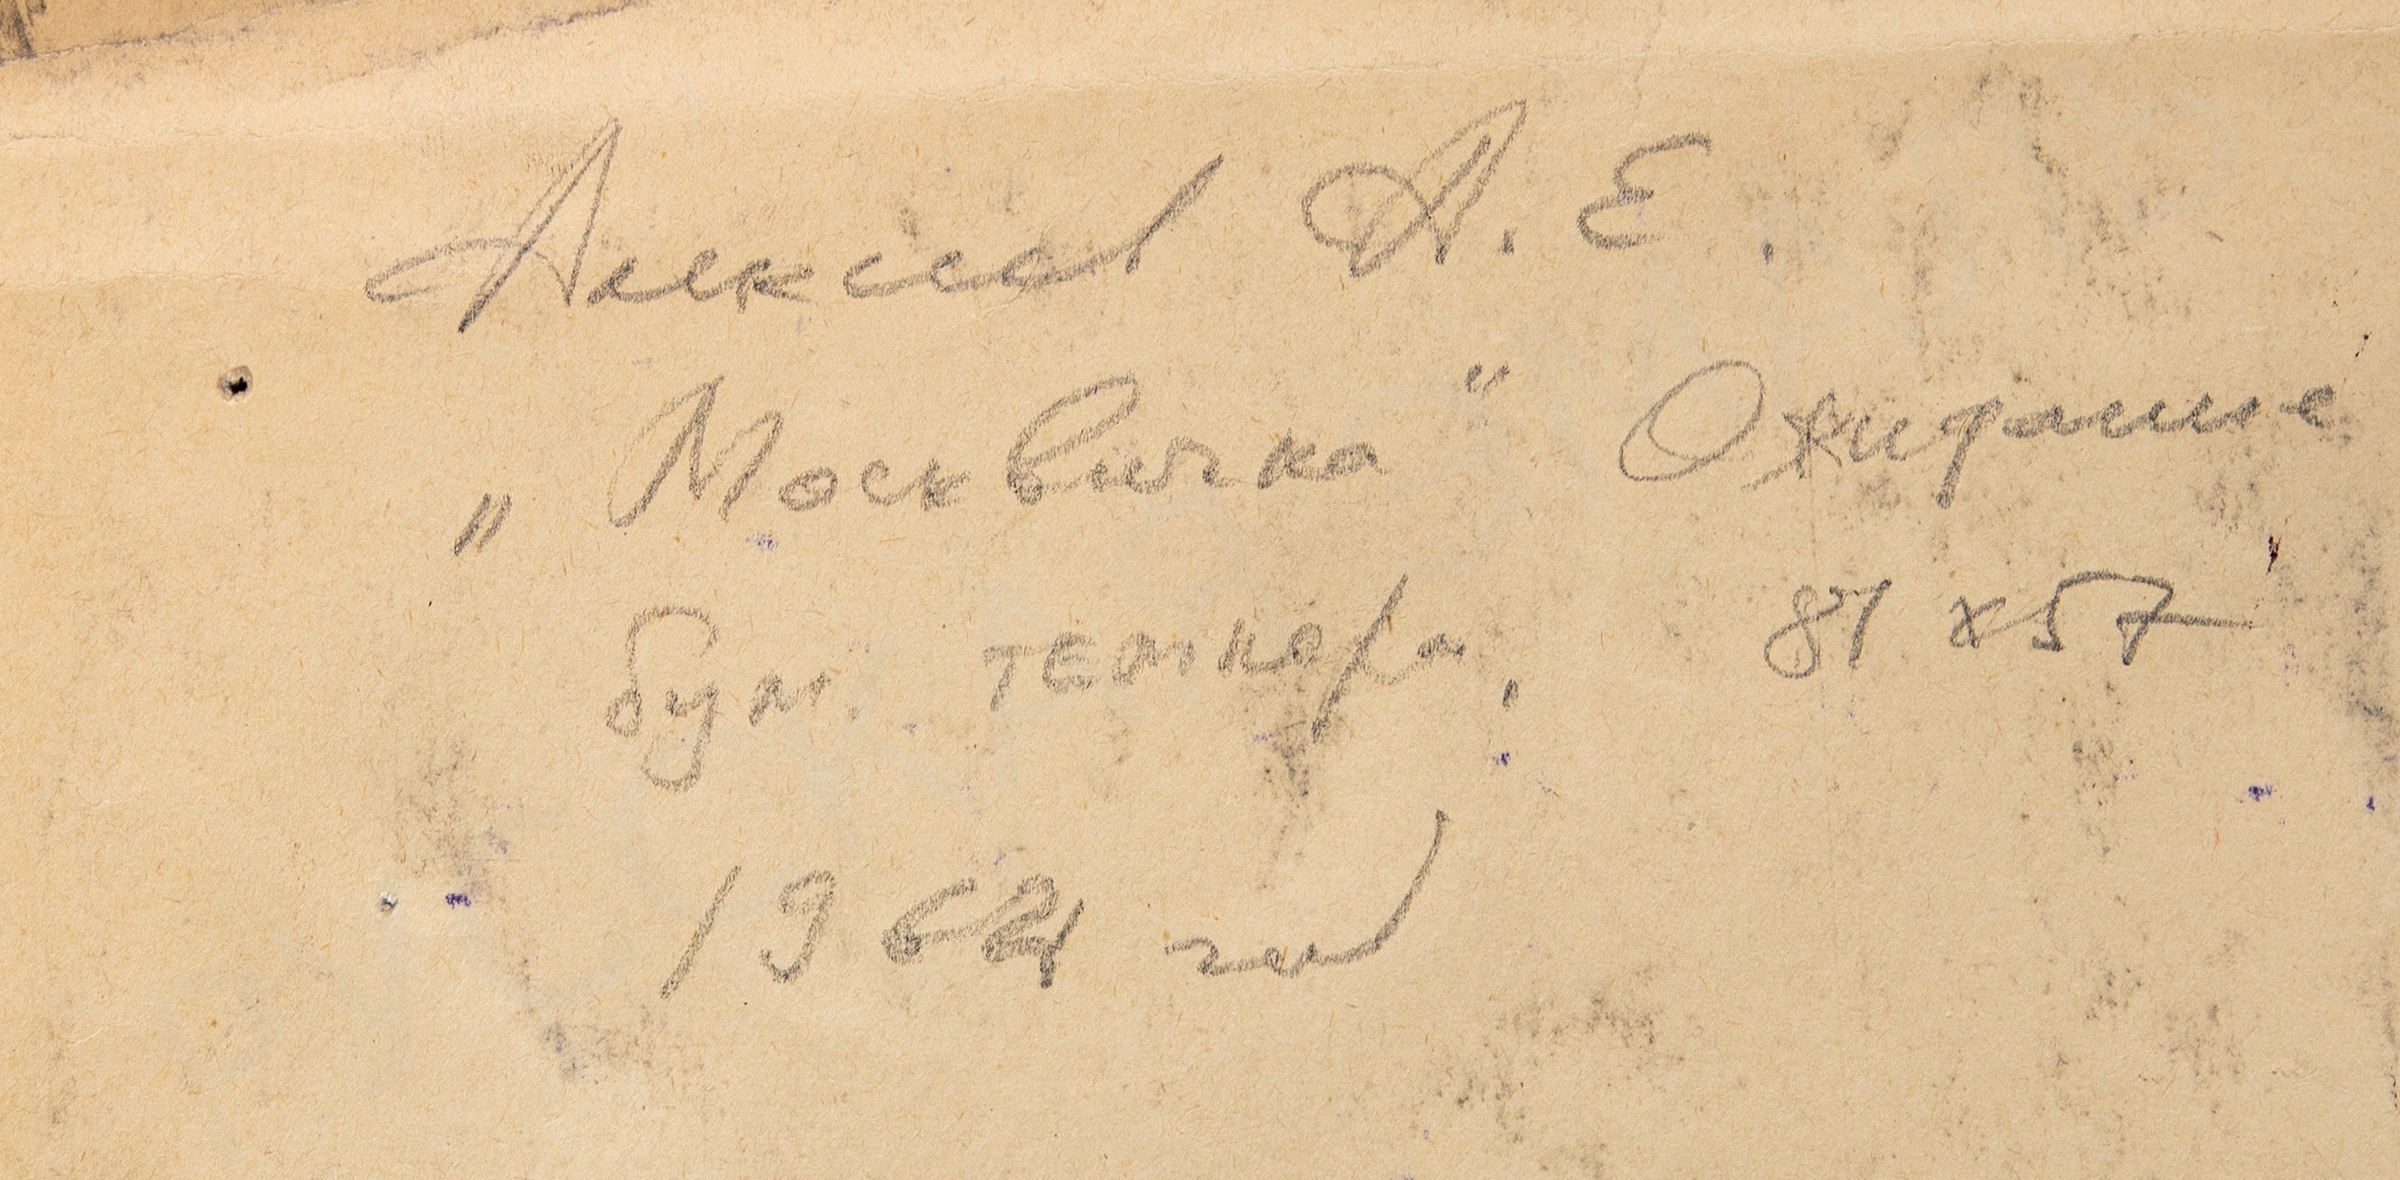 Алексеев А. Е.
„Москвичка" Ожидание
бум. темпера. 81 x 57
1964 год